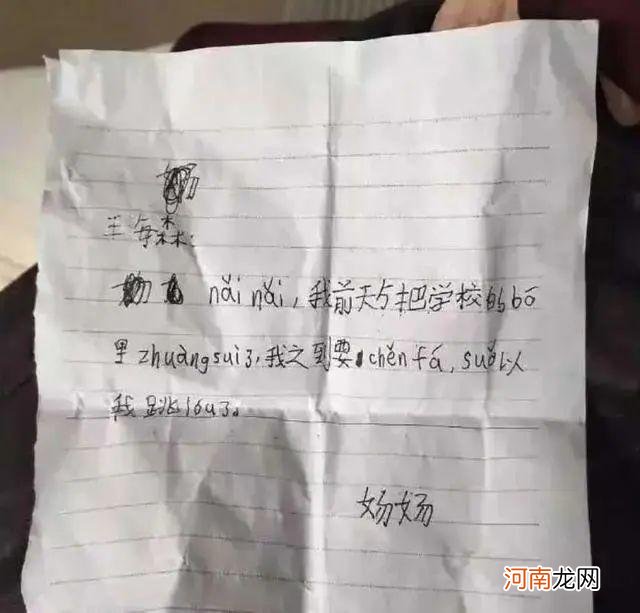 羊每森:
nǎi nǎi,我前天与把学校的bō
里zhuàng suì了,我之到要chěn fá,suǒ以
我跳lóu了。
妫妫
河南龙网